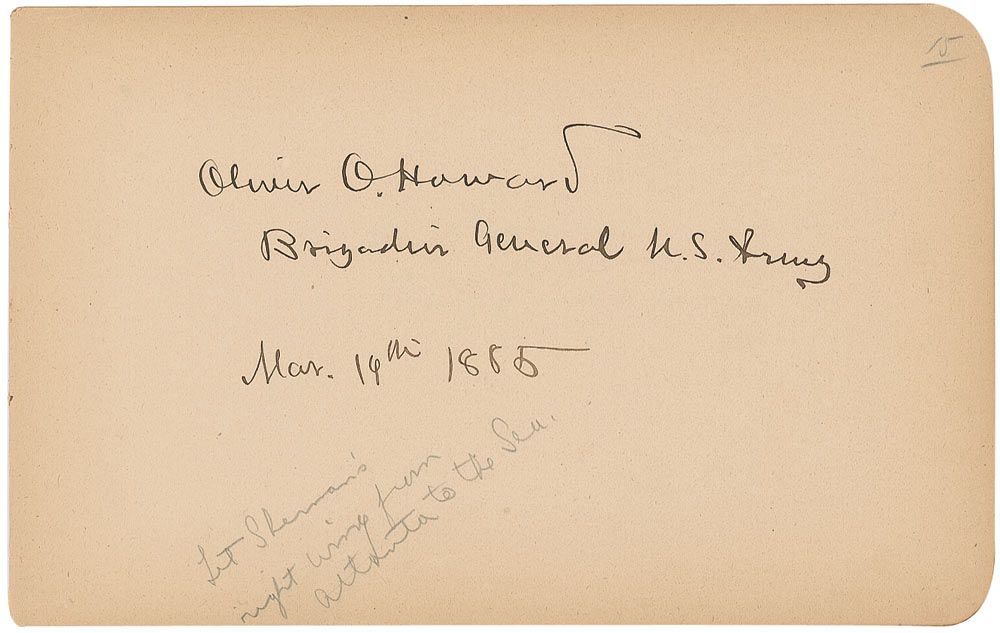 15
Oliver O. Howard
Brigadier General U.S. Army
Mar. 14th 1885
Led Sherman's
right wing from
Atlanta to the Sea.